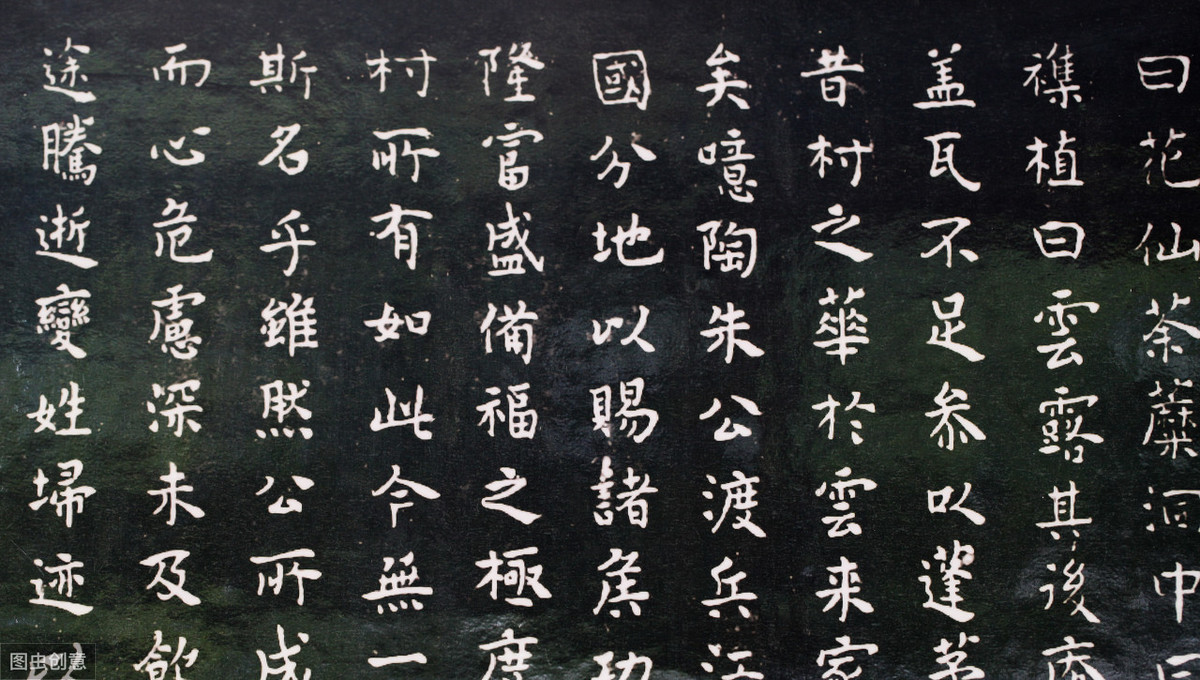 曰花仙荼蘼洞中
襍植曰雲露其後
盖瓦不足叅以蓬茅
昔村之華於雲来家
矣噫陶朱公渡兵江
國分地以賜諸矦功
隆富盛備福之極度
村所有如此今無一
斯名乎雖然公所成
而心危慮深未及飲
途騰逝變姓埽迹
图虫创意